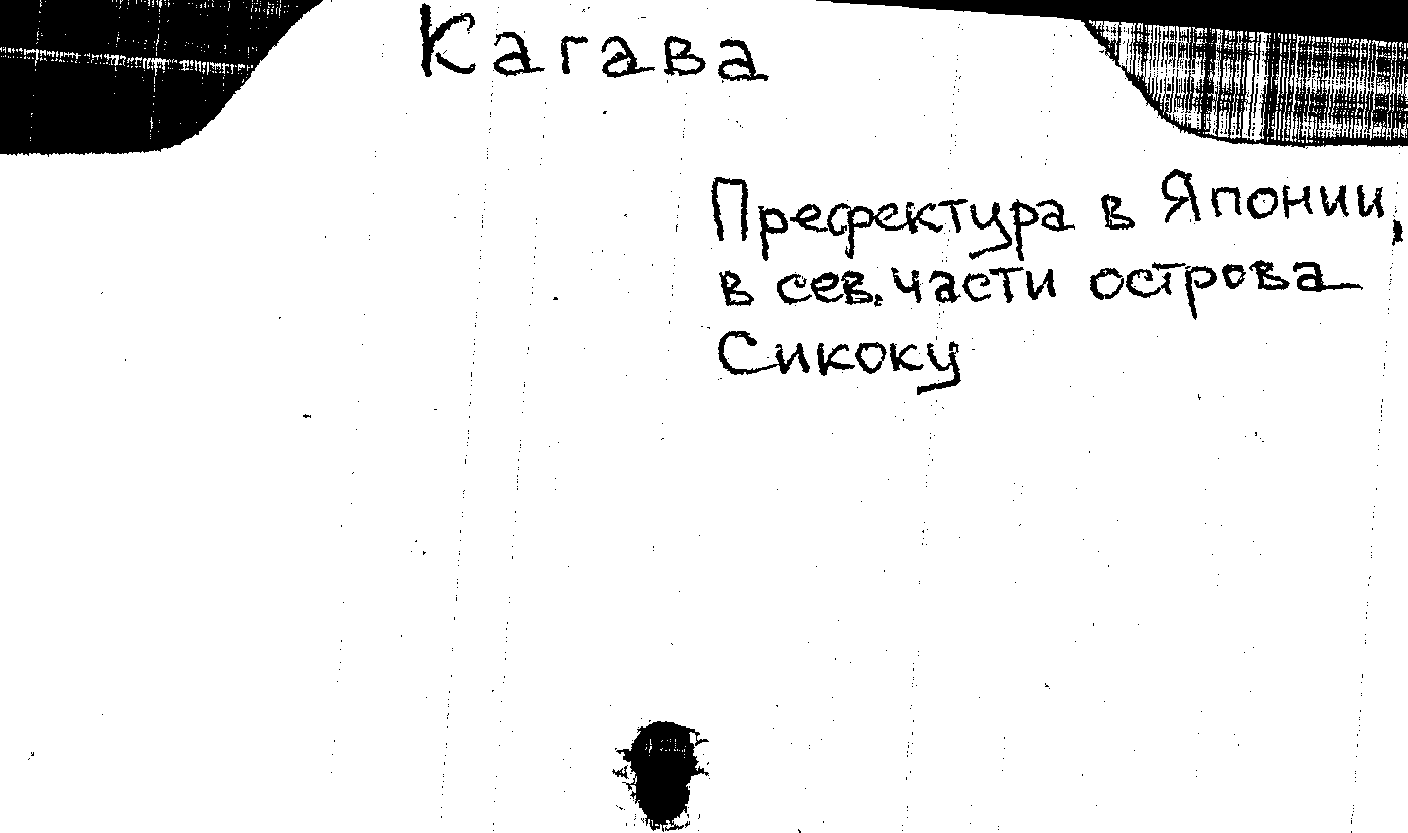 Кагава
Префектура в Японии,
в сев. части острова
Сикоку